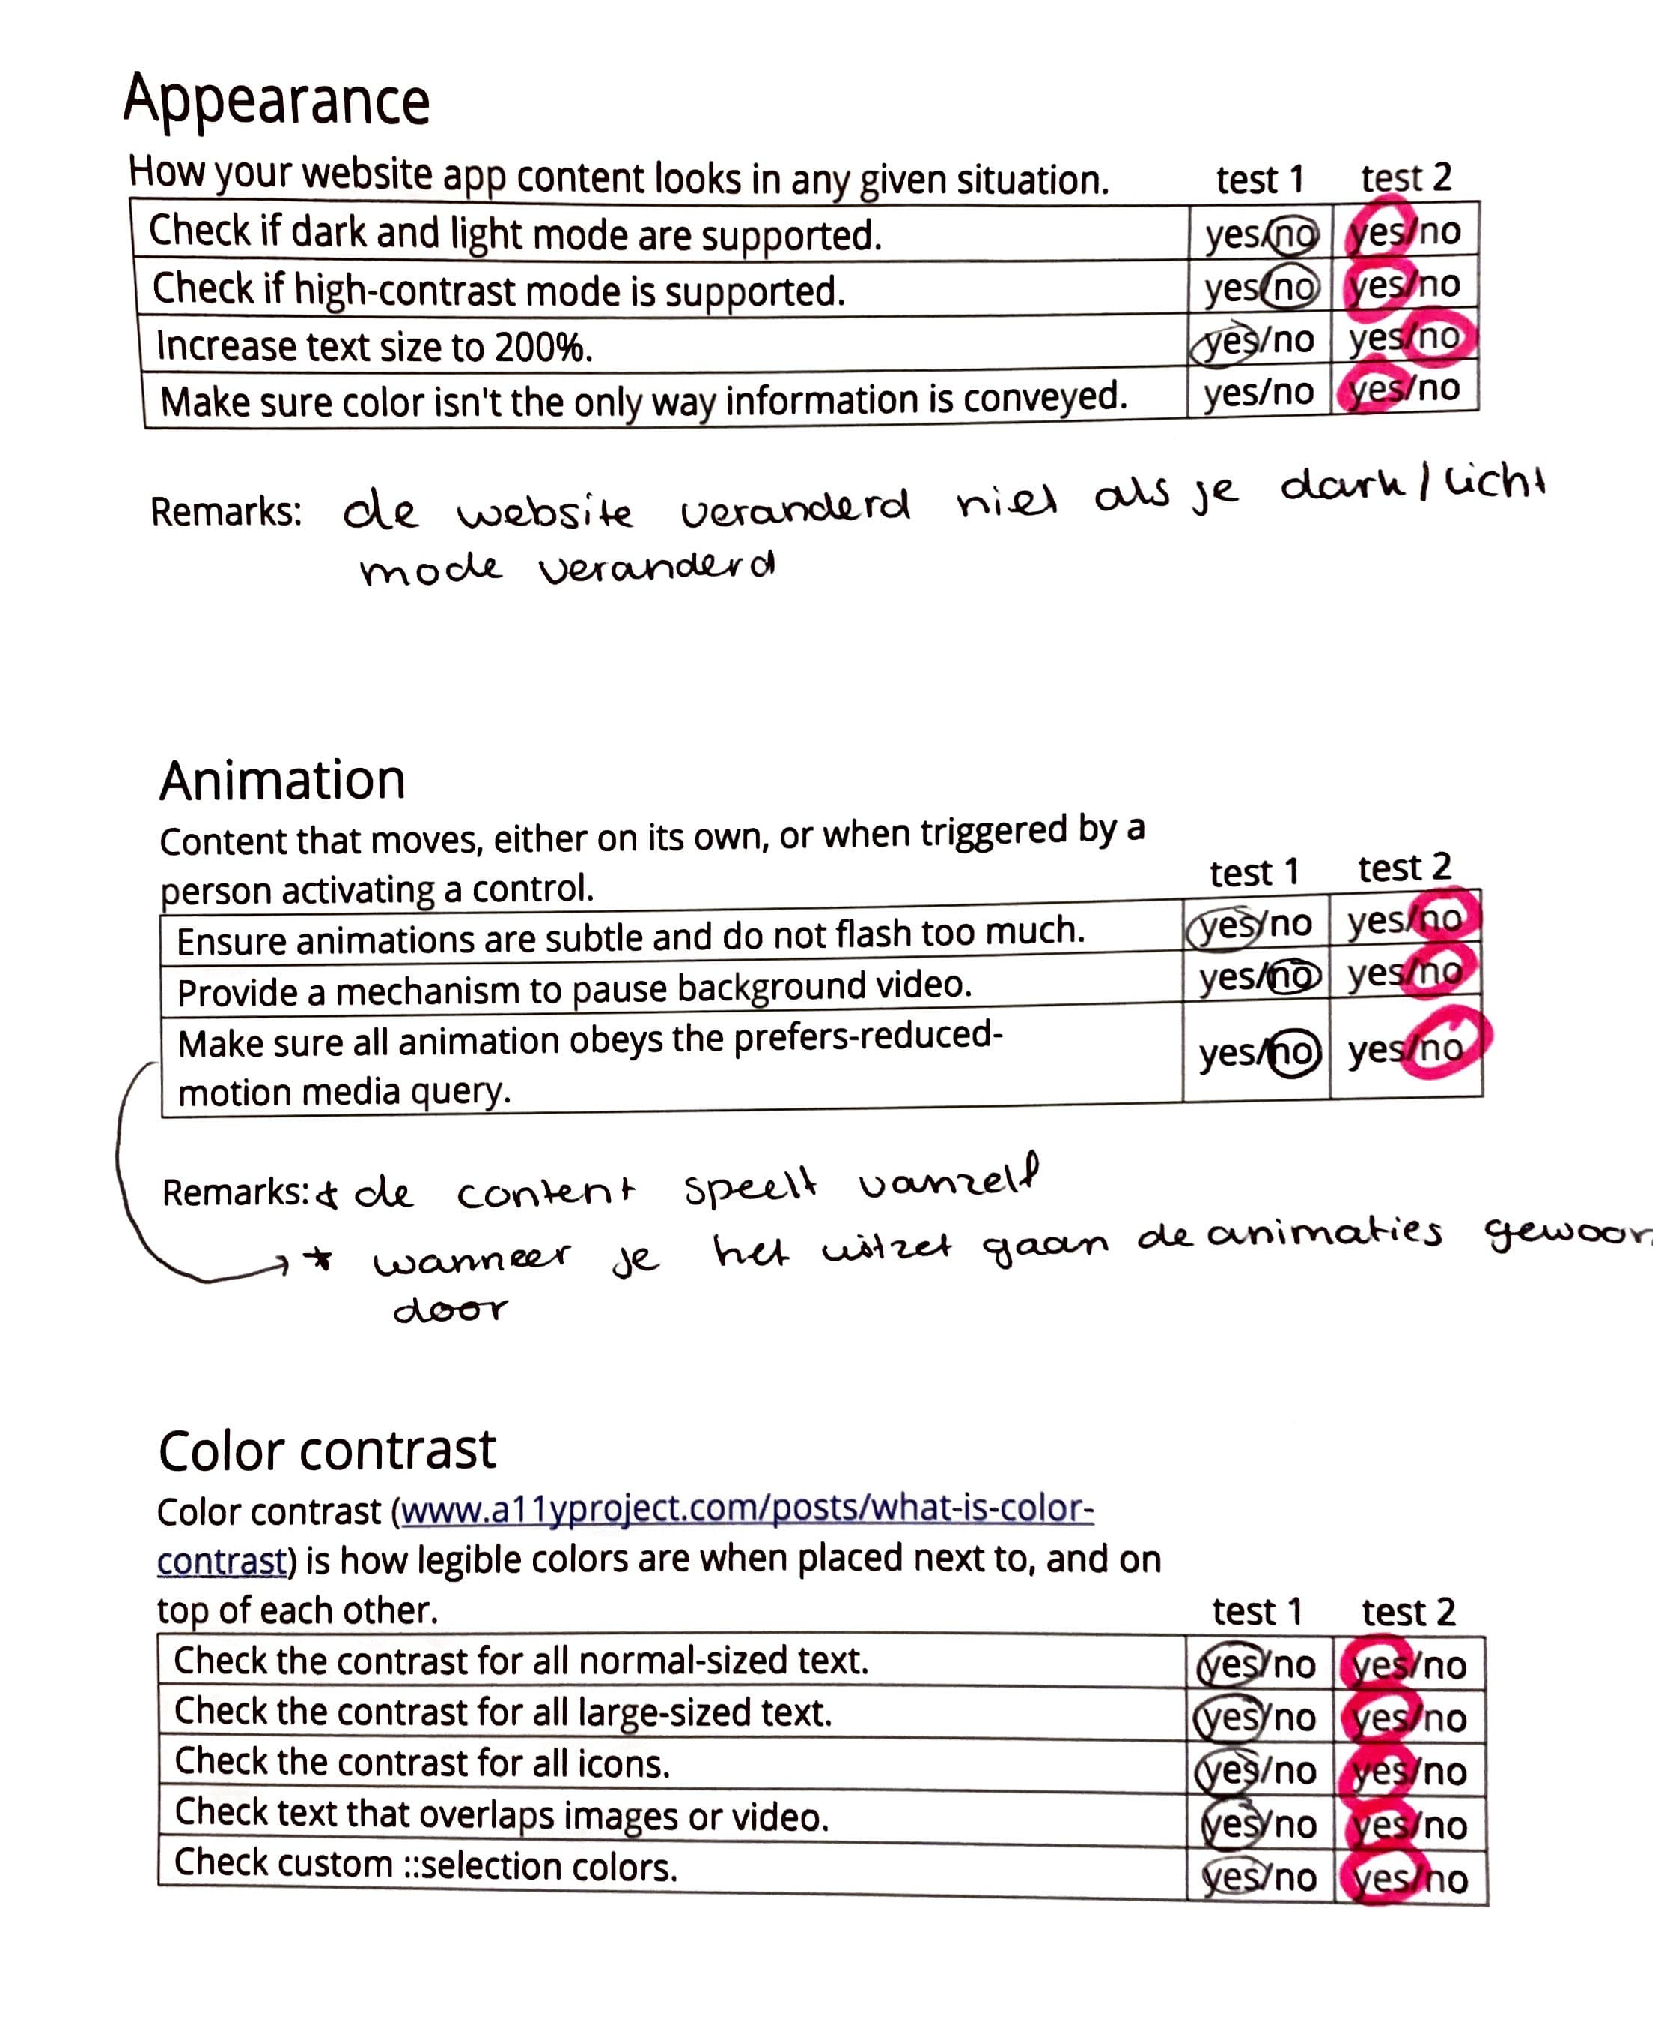 Appearance
How your website app content looks in any given situation. test 1 test 2
Check if dark and light mode are supported. yes/no yes/no
Check if high-contrast mode is supported. yes/no yes/no
Increase text size to 200%. yes/no yes/no
Make sure color isn't the only way information is conveyed. yes/no yes/no
Remarks: de website veranderd niet als je dark/licht
mode veranderd
Animation
Content that moves, either on its own, or when triggered by a
person activating a control. test 1 test 2
Ensure animations are subtle and do not flash too much. yes/no yes/no
Provide a mechanism to pause background video. yes/no yes/no
Make sure all animation obeys the prefers-reduced-
motion media query. yes/no yes/no
Remarks: * de content speelt vanzelf
→ * wanneer je het uitzet gaan de animaties gewoon
door
Color contrast
Color contrast (www.a11yproject.com/posts/what-is-color-
contrast) is how legible colors are when placed next to, and on
top of each other. test 1 test 2
Check the contrast for all normal-sized text. yes/no yes/no
Check the contrast for all large-sized text. yes/no yes/no
Check the contrast for all icons. yes/no yes/no
Check text that overlaps images or video. yes/no yes/no
Check custom ::selection colors. yes/no yes/no